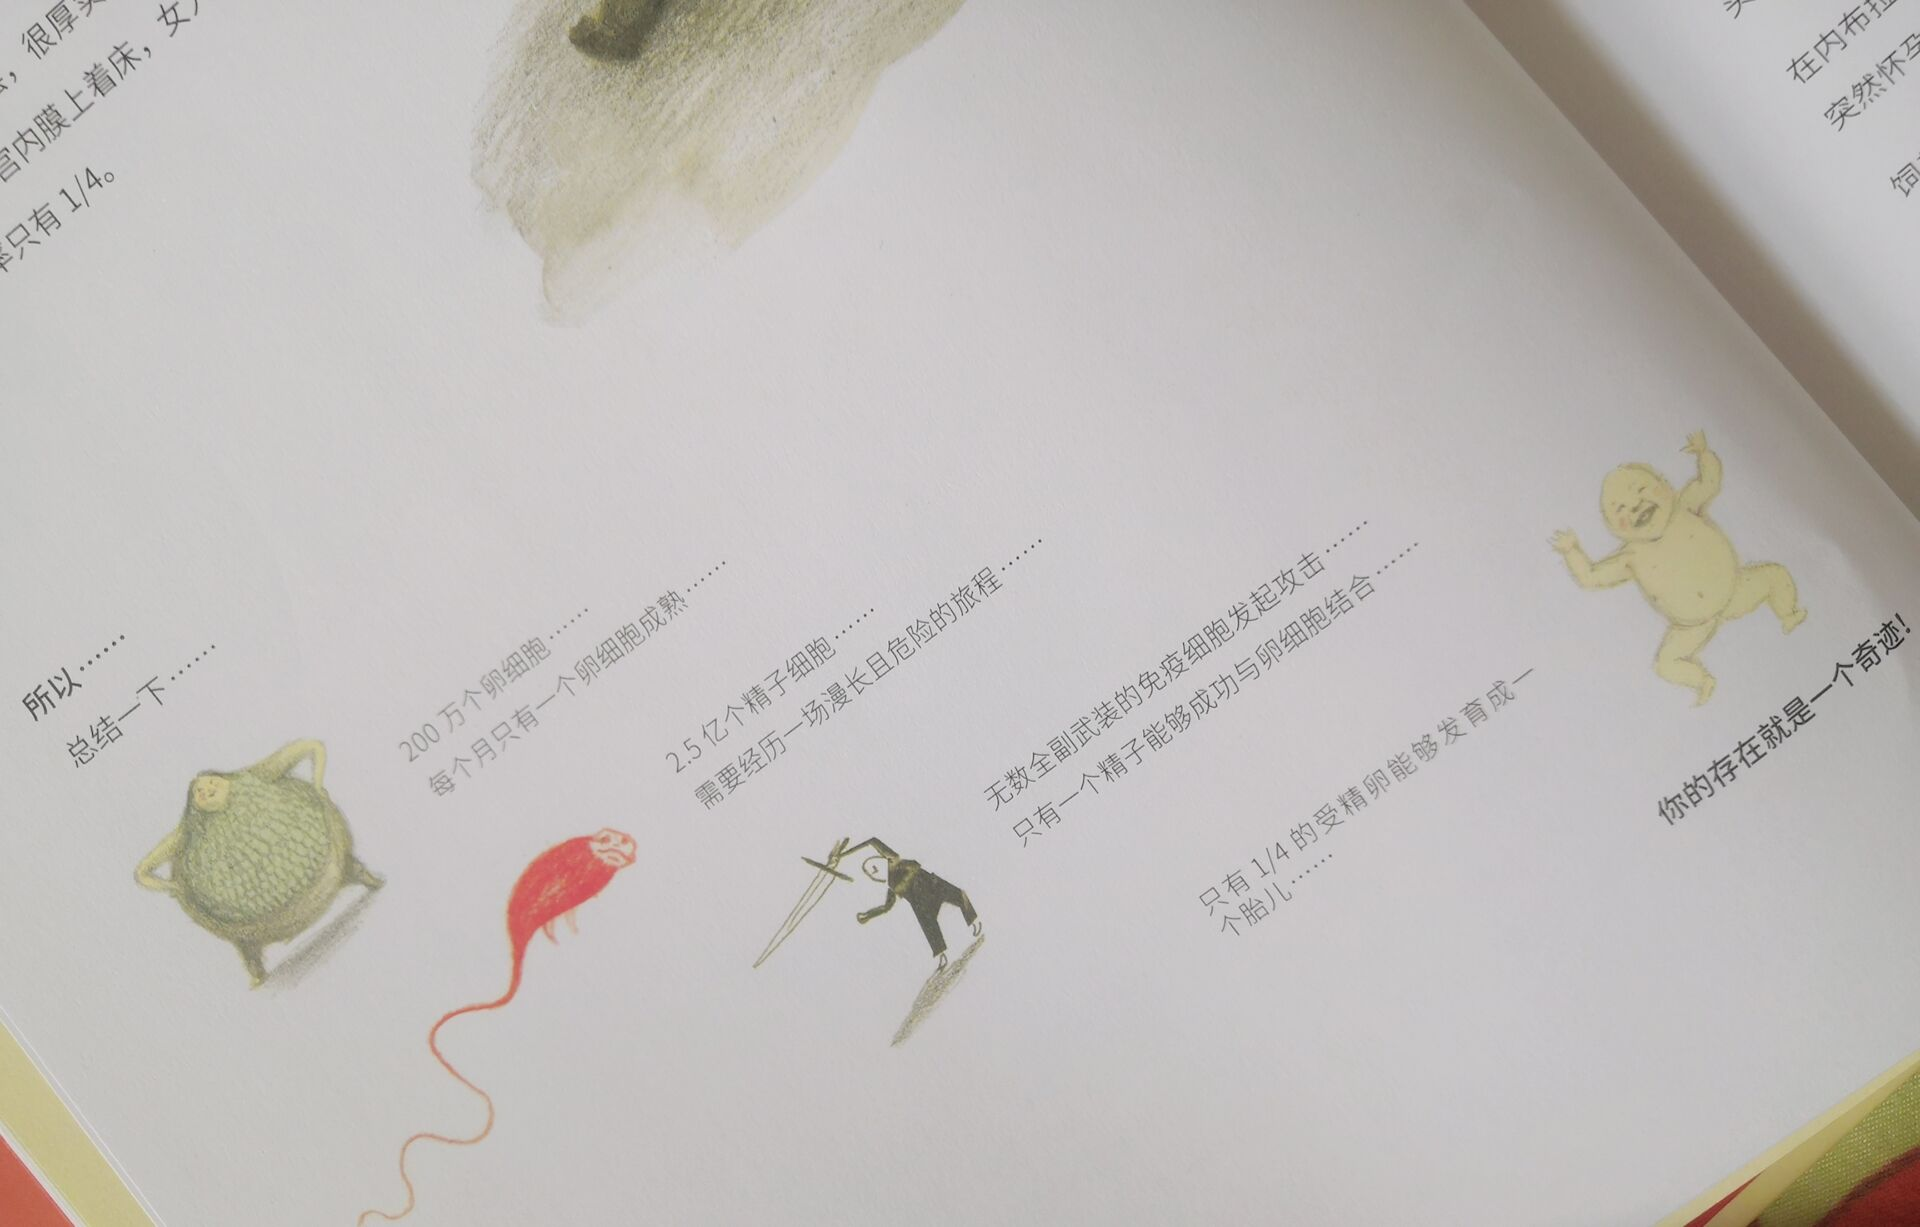 很厚实
宫内膜上着床，女
率只有 1/4。
所以……
总结一下……
200 万个卵细胞……
每个月只有一个卵细胞成熟……
2.5 亿个精子细胞……
需要经历一场漫长且危险的旅程……
无数全副武装的免疫细胞发起攻击……
只有一个精子能够成功与卵细胞结合……
只有 1/4 的受精卵能够发育成一
个胎儿……
你的存在就是一个奇迹！
在内布拉
突然怀孕
饲